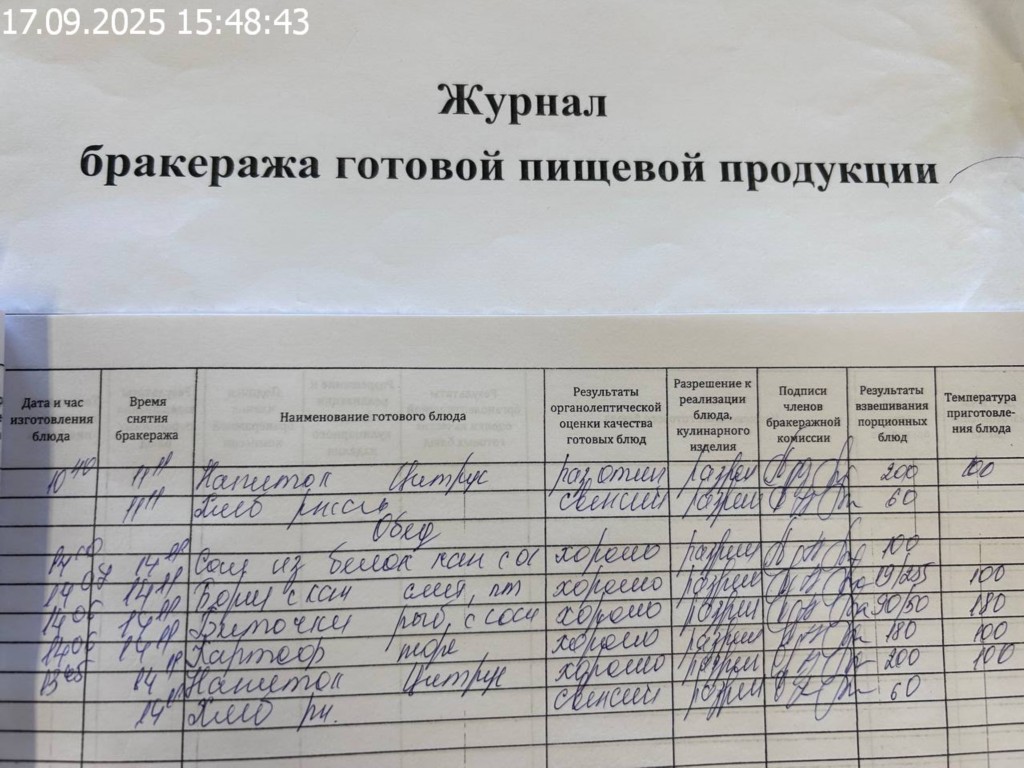 17.09.2025 15:48:43
Журнал
бракеража готовой пищевой продукции
Дата и час изготовления блюда
Время снятия бракеража
Наименование готового блюда
Результаты органолептической оценки качества готовых блюд
Разрешение к реализации блюда, кулинарного изделия
Подписи членов бракеражной комиссии
Результаты взвешивания порционных блюд
Температура приготовле-ния блюда
10 40 11 11 Напиток Цитрус разреш 200 100
11 11 Хлеб разреш 60
Обед
14 11 Сал из белок кап хорошо разреш 100
14 11 Борщ с кап смет, хорошо разреш 100
14 06 14 11 Биточки рыб, с хорошо разреш 90/50 180
14 06 14 11 Картоф пюре хорошо разреш 180 100
14 11 Напиток Цитрус хорошо разреш 200 100
14 Хлеб рж. разреш 60